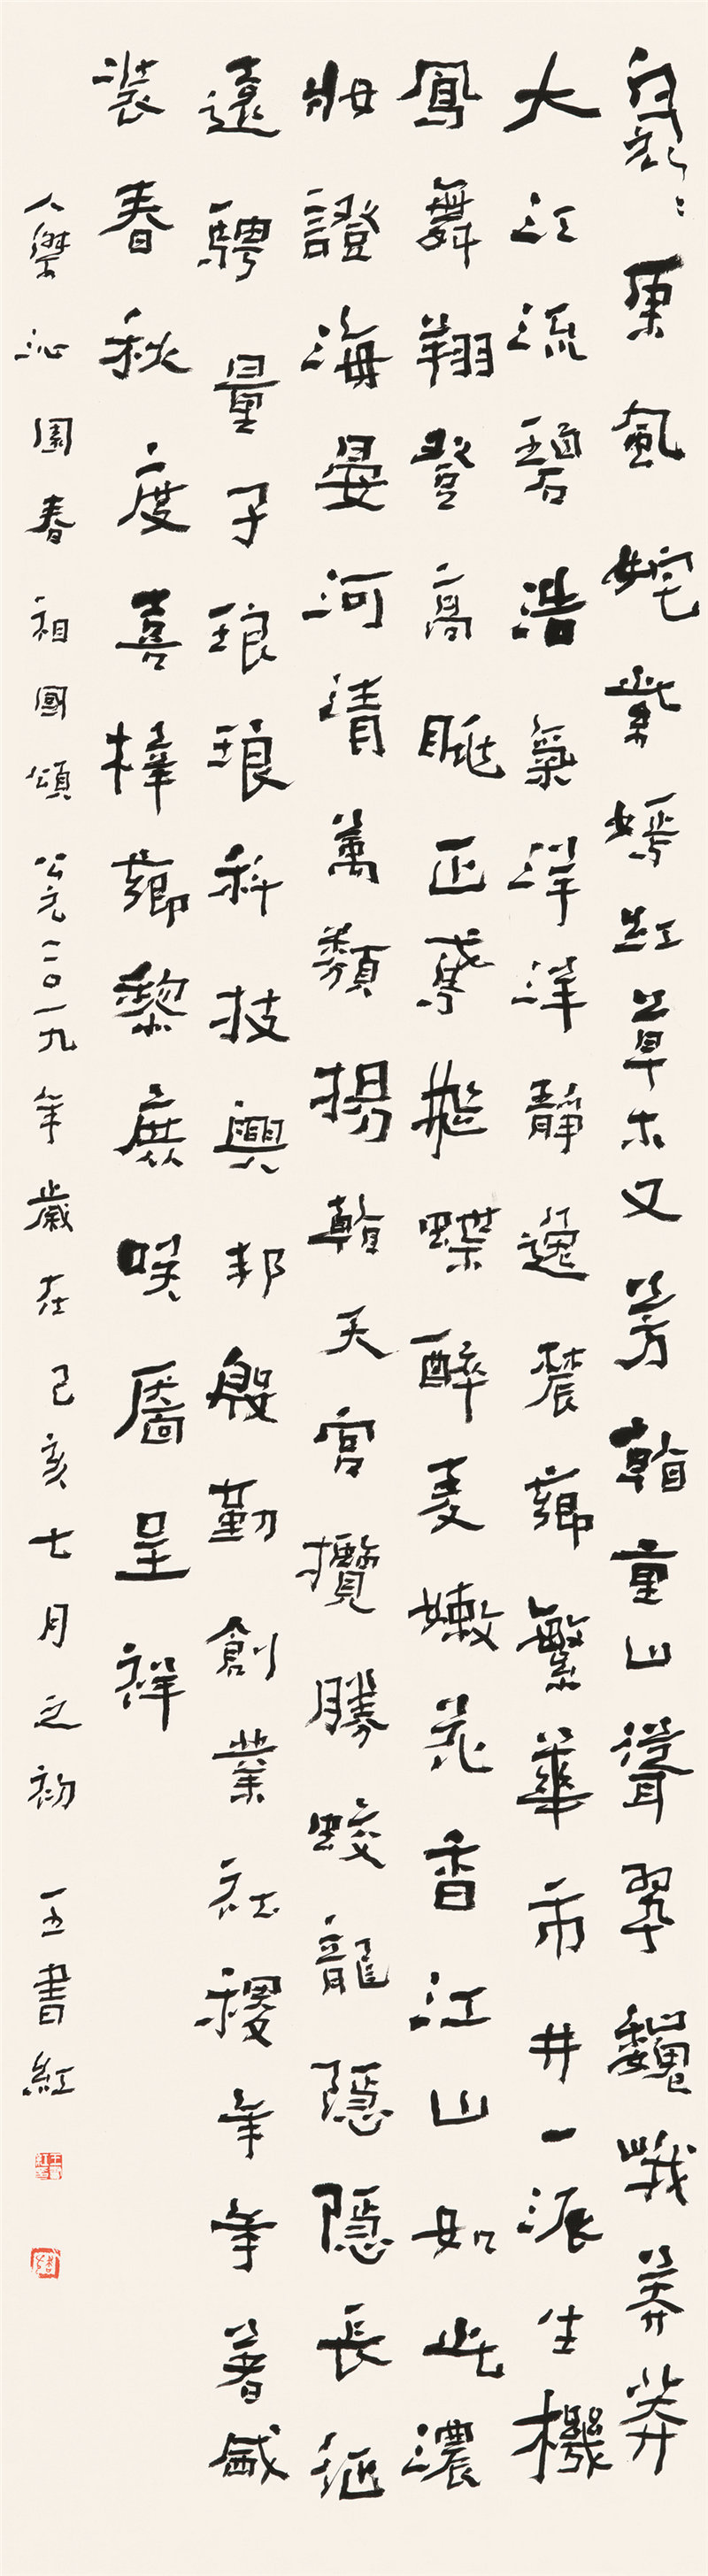 裊々東風姹紫嫣紅草木又芳看重山聳翠巍峨莽莽
大江流碧浩氣洋洋靜逸農鄉繁華市井一派生機
鳳舞翔登高眺正鳶飛蝶醉麥嫩花香江山如此濃
妝證海晏河清萬類揚看天宮攬勝蛟龍隱隱長征
遠騁量子琅琅科技興邦殷勤創業社稷年年著盛
裝春秋度喜梓鄉黎庶咲靨呈祥
人傑沁園春祖國頌公元二〇一九年歲在己亥七月之初 王書紅